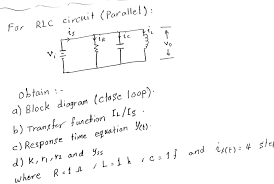 For RLC circuit (Parallel):
is
iR
ic
iL
Vi
Vo
obtain :-
a) Block diagram (close loop).
b) Transfer function IL/IS.
c) Response time equation y(t).
d) K, r1, r2 and yss
where R=1 Ω, L=1 h, C=1 f and is(t)= 4 step